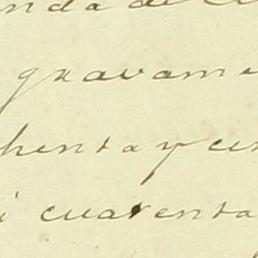 nda de
gravame
henta y cu
i cuarenta